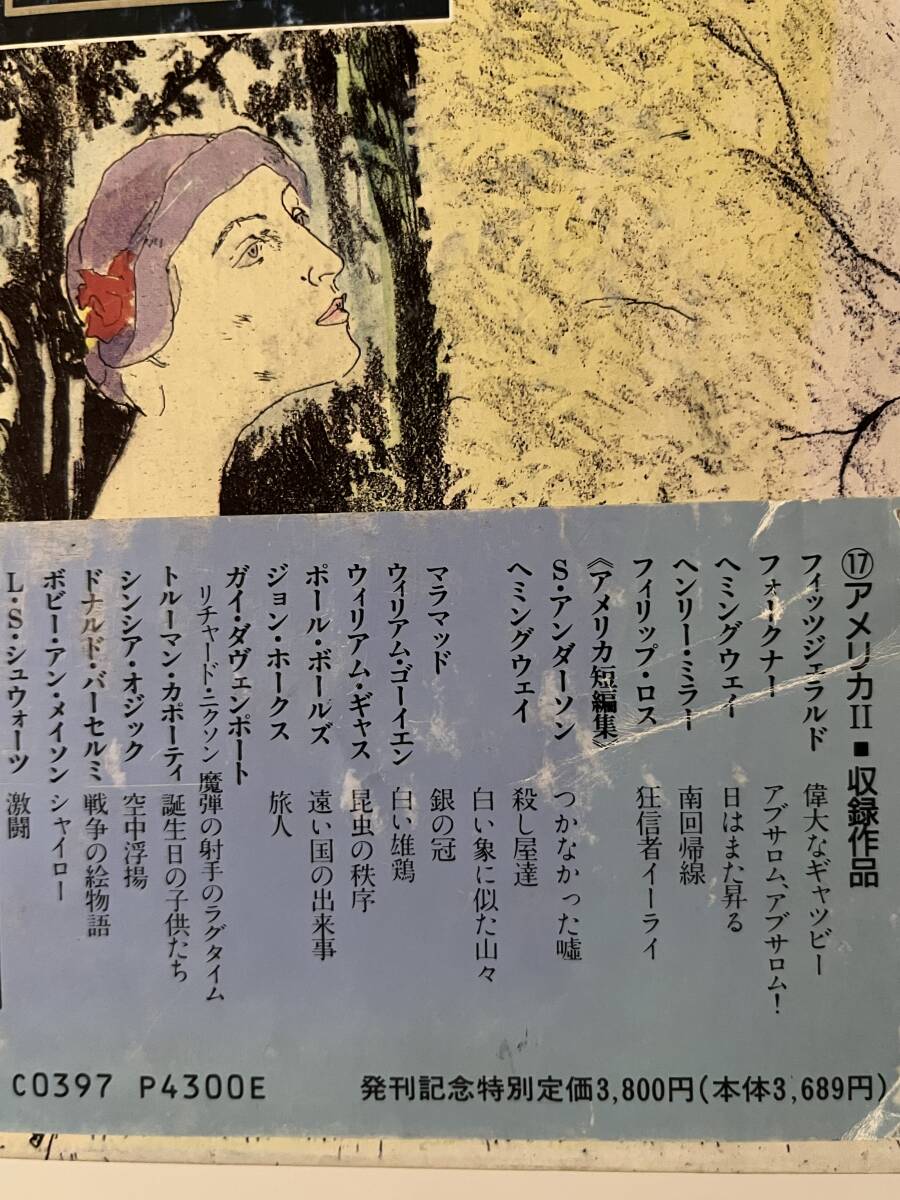 ⑰アメリカII■収録作品
フィッツジェラルド 偉大なギャツビー
フォークナー アブサロム、アブサロム!
ヘミングウェイ 日はまた昇る
ヘンリー・ミラー 南回帰線
フィリップ・ロス 狂信者イーライ
《アメリカ短編集》
S・アンダーソン つかなかった嘘
ヘミングウェイ 殺し屋達
白い象に似た山々
マラマッド 銀の冠
ウィリアム・ゴーイエン 白い雄鶏
ウィリアム・ギャス 昆虫の秩序
ポール・ボールズ 遠い国の出来事
ジョン・ホークス 旅人
ガイ・ダヴェンポート
リチャード・ニクソン 魔弾の射手のラグタイム
トルーマン・カポーティ 誕生日の子供たち
シンシア・オジック 空中浮揚
ドナルド・バーセルミ 戦争の絵物語
ボビー・アン・メイソン シャイロー
L・S・シュウォーツ 激闘
C0397 P4300E 発刊記念特別定価3,800円(本体3,689円)